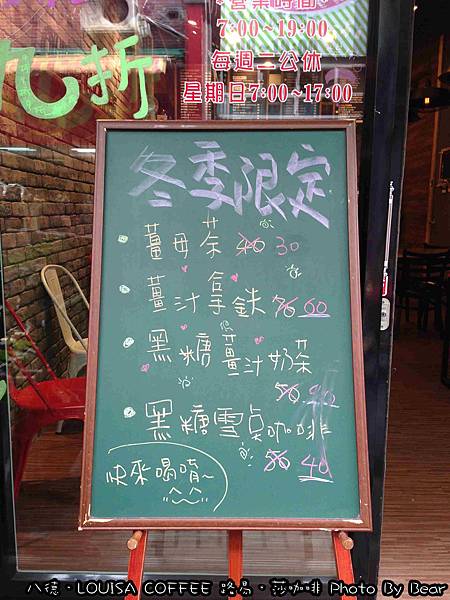 營業時間
7:00~19:00
每週二公休
星期日7:00~17:00
九折
冬季限定
薑母茶 40 30
薑汁拿鉄 76 60
黑糖薑汁奶茶
50
黑糖雪貞咖啡
50 40
快來喝唷~
八德·LOUISA COFFEE 路易·莎咖啡 Photo By Bear